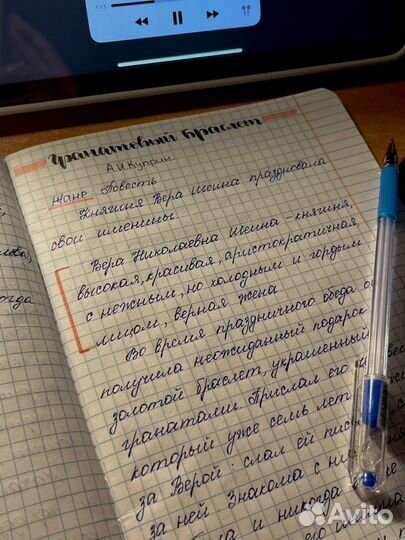 1:13
Гранатовый браслет
А.И.Куприн
Жанр: Повесть
Княгиня Вера Шеина праздновала
свои именины.
Вера Николаевна Шеина - княгиня,
высокая, красивая, аристократичная,
с нежным, но холодным и гордым
лицом, верная жена.
Во время праздничного обеда о
получила неожиданный подарок
золотой браслет, украшенный
гранатами. Прислал его
который уже семь лет
за Верой: слал ей пис
за ней. Знакома с ни
и никогда
его
огда
Avito